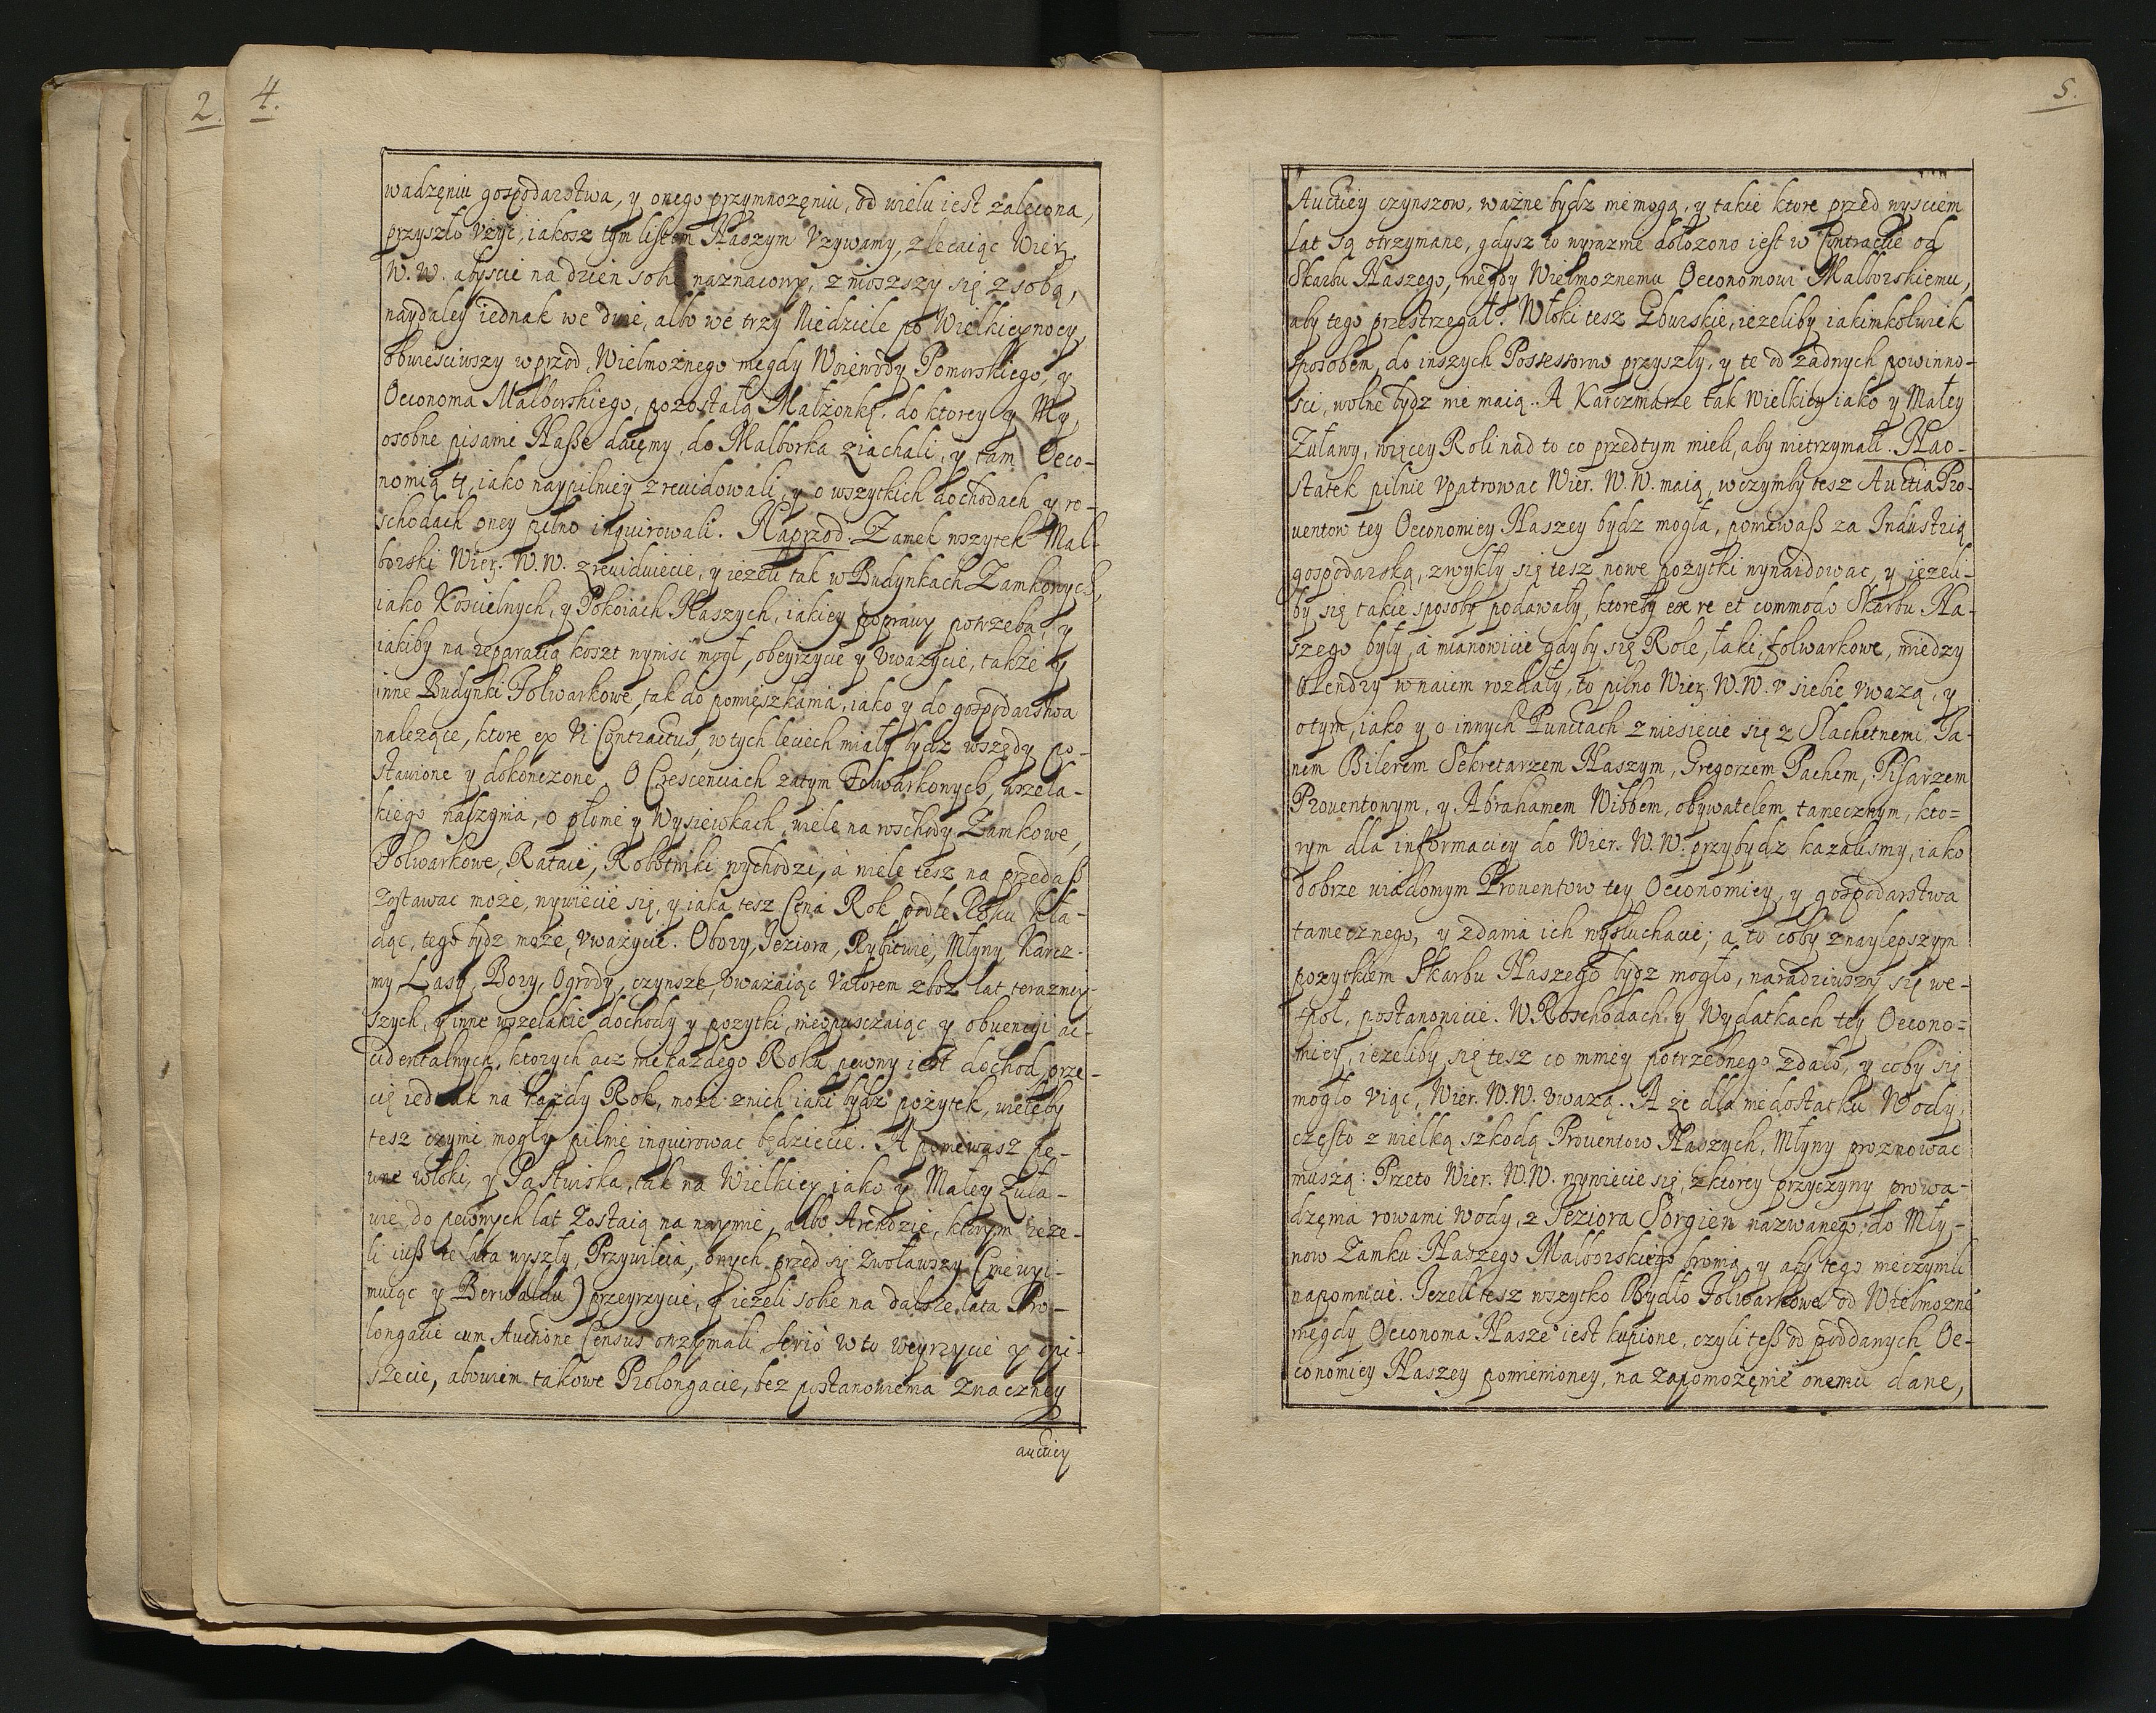 2.
4.
wadzęniu gospodarstwa, y onego przymnozęniu, od wielu iest zalecona,
przyszło vżyć, iakosz tym listem Naszym Vzywamy, zlecaiąc Wierz.
W. W. abyscie na dzien sobie naznaczony, zniosszy się z sobą,
naydaley iednak we dwie, albo we trzy Niedziele po Wielkieynocy,
obwiesciwszy wprzod Wielmoznego niegdy Woiewody Pomorskiego, y
Oeconoma Malborskiego, pozostałą Małżonkę, do ktorey y My,
osobne pisanie Nasze daięmy, do Malborka ziachali, y tam Oeco-
nomią tę, iako naypilniey zrewidowali, y o wszytkich dochodach y ro-
schodach oney pilno inquirowali. Naprzod. Zamek wszytek Mal-
borski Wierz. W. W. zrewiduiecie, y iezeli tak w Budynkach Zamkowych,
iako Koscielnych, y Pokoiach Naszych, iakiey poprawy potrzeba, y
iakiby na reparatią koszt wynisc mogł, obeyrzycie y vwazycie, takze y
inne Budynki Folwarkowe, tak do pomięszkania, iako y do gospodarstwa
nalezące, ktore ex Vi Contractus, w tych leciech miały bydz wszędy po-
stawione y dokonczone. O Crescenciach zatym Folwarkowych, wszela-
kiego naszynia, o plonie y Wysiewkach, wiele na roschody Zamkowe,
Folwarkowe, Rataie, Robotniki wychodzi, a wiele tesz na przedaß
zostawac moze, wywiecie się, y iaka tesz Cena Rok podle Roku kła-
dąc, tego bydz moze, vwazycie. Obory, Ieziora, Rybitwie, Młyny, Karcz-
my, Lasy, Bory, Ogrody, czynsze, vwazaiąc Valorem zboz lat terazniey-
szych, y inne wszelakie dochody y pozytki, nieopusczaiąc y obuencyi ac-
cidentalnych, ktorych acz niekazdego Roku pewny iest dochod, prze-
cię iednak na kazdy Rok, moze znich iaki bydz pozytek, wieleby
tesz czynic mogły pilnie inquirowac będziecie. A poniewasz pe-
wne włoki, y Pastwiska, tak na Wielkiey iako y Małey Zuła-
wie, do pewnych lat zostaią na naymie, albo Arendzie, ktorym ieze-
li iuß te lata wyszły, Przywileia, onych przed się zwoławszy (nie wyi-
muiąc y Berwaldu) przeyrzycie, y iezeli sobie na dalsze lata Pro-
longacie cum Auctione Census otrzymali, serio w to weyrzycie y opi-
szecie, abowiem takowe Prolongacie, bez postanowienia znaczney
auctiey
5.
Auctiey czynszow, wazne bydz niemogą, y takie ktore przed wysciem
lat są otrzymane, gdysz to wyraznie dołozono iest w Contracie od
Skarbu Naszego, niegdy Wielmoznemu Oeconomowi Malborskiemu,
aby tego przestrzegał. Włoki tesz Gburskie, iezeliby iakimkolwiek
sposobem, do inszych Possessorow przyszły, y te od zadnych powinno-
sci, wolne bydz nie maią. A Karczmarze tak Wielkiey iako y Małey
Zuławy, więcey Roli nad to co przedtym mieli, aby nietrzymali. Nao-
statek pilnie vpatrowac Wier. W. W. maią, wczymby tesz Auctia Pro-
uentow tey Oeconomiey Naszey bydz mogła, poniewaß za Industrią
gospodarską, zwykły się tesz nowe pozytki wynaidowac, y iezeli-
by się takie sposoby podawały, ktoreby ex re et commodo Skarbu Na-
szego były, a mianowicie gdyby się Role, łąki, folwarkowe, miedzy
Olendry w naiem rozdały, to pilno Wierz. W. W. v siebie vwazą, y
otym, iako y o innych Punctach zniesiecie się z Slachetnemi, Ia-
nem Bilerem Sekretarzem Naszym, Gregorzem Pachem, Pisarzem
Prouentowym, y Abrahamem Wibbem, obywatelem tamecznym, kto=
rym dla informaciey do Wier. W. W. przybydz kazalismy, iako
dobrze wiadomym Prouentow tey Oeconomiey, y gospodarstwa
tamecznego, y zdania ich wysłuchacie; a to coby znaylepszym
pozytkiem Skarbu Naszego bydz mogło, naradziwszy się we-
społ, postanowicie. W Roschodach y Wydatkach tey Oecono=
miey, iezeliby się tesz co mniey potrzebnego zdało, y coby się
mogło viąc, Wier. W. W. vwazą. A ze dla niedostatku Wody,
często z wielką szkodą Prouentow Naszych, Młyny proznowac
muszą: Przeto Wier. W. W. wywiecie się, z ktorey przyczyny prowa-
dzęnia rowami Wody, z Ieziora Sorgien nazwanego, do Mły-
now Zamku Naszego Malborskiego bronią, y aby tego nieczynili
napomnicie. Iezeli tesz wszytko Bydło Folwarkowe od Wielmozne
niegdy Oeconoma Nasze iest kupione, czyli teß od poddanych Oe-
conomiey Naszey pomienioney, na zapomozęnie onemu dane,